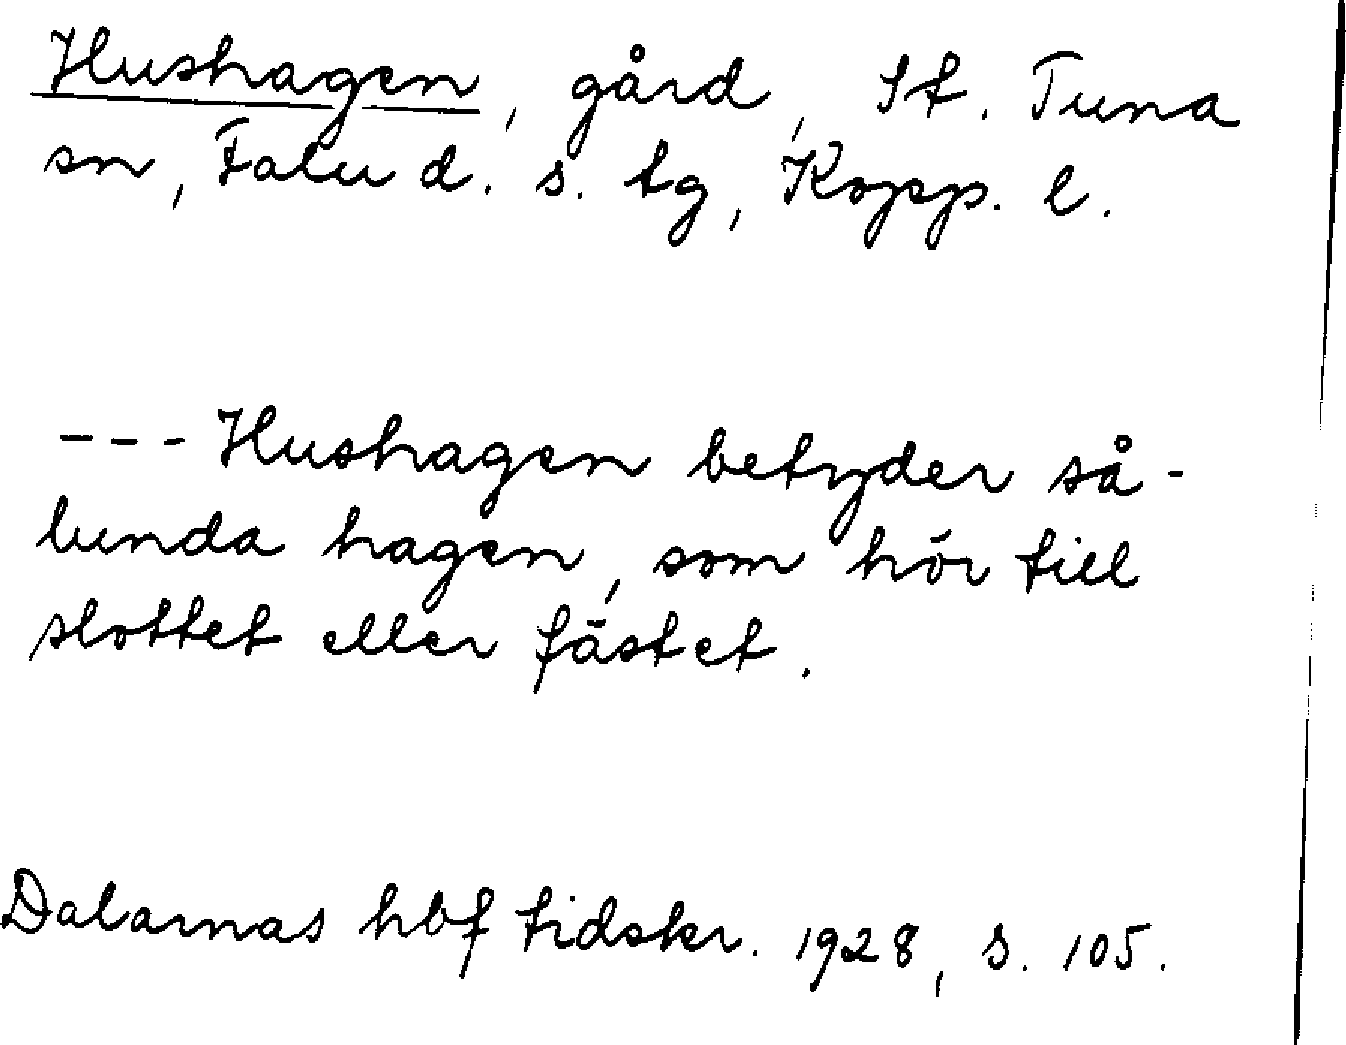 Hushagen, gård, St. Tuna
sn, Falu d. s. tg, Kopp. l.
--- Hushagen betyder så-
lunda hagen, som hör till
slottet eller fästet.
Dalarnas hbf tidskr. 1928, s. 105.